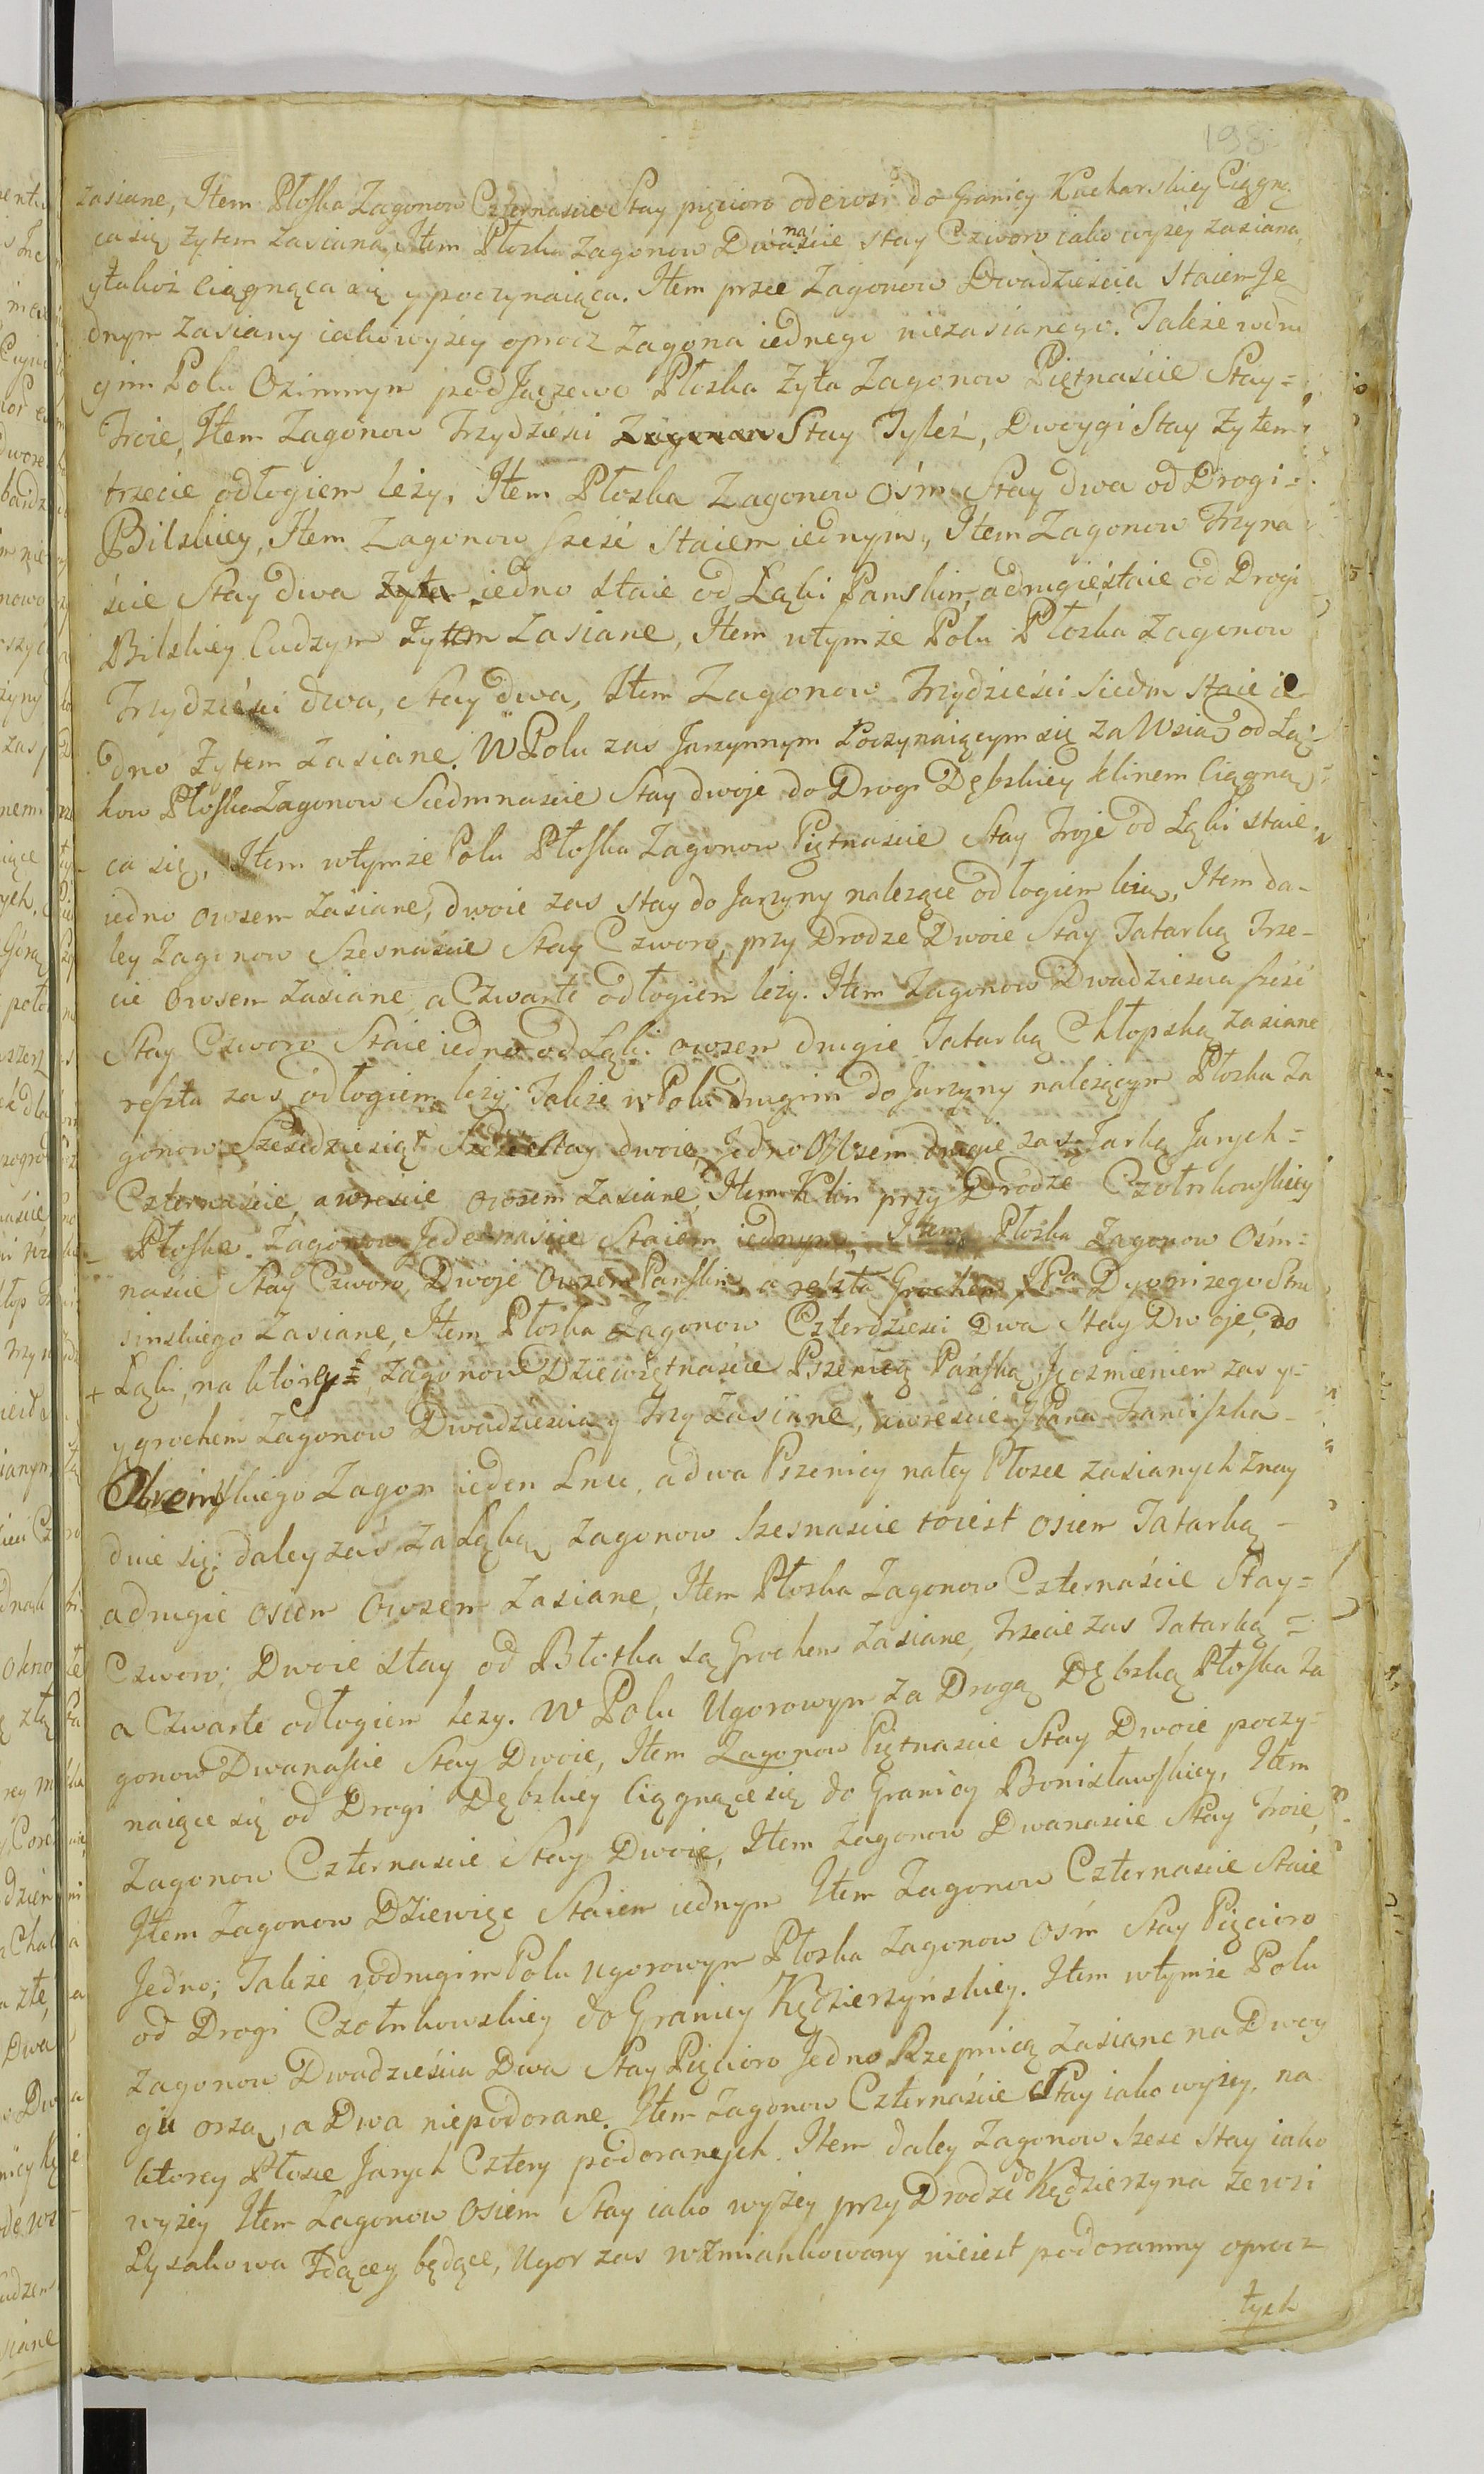 198
zasiane, Item Płoska Zagonow Czternascie Stay pięcioro odewsi do Granicy Kucharskiey Ciągną
ca się żytem zasiana, Item Płoska zagonow Dwanaście stay Czworo iako wyżey zasiana,
y takoż ciągnąca się y poczynaiąca. Item przez Zagonow Dwadzieścia staiem Je
dnym zasiany iako wyżey oprocz Zagona iednego niezasianego. Takze wdru
gim Polu Ozimnym pod Jączewo Płoska żyta Zagonow Piętnaście Stay=
Troie, Item Zagonow Trzydzieści Zagonow Stay Tyleż, Dwoygi Stay żytem
trzecie odłogiem leży, Item Płoska Zagonow Ośm Stay dwa od Drogi=
Bilskiey, Item Zagonow sześć staiem iednym, Item Zagonow Trzyna
ście Stay dwa żyta iedno staie od Łąki Panskim, a drugie staie od Drogi
Bilskiey Cudzym żytem zasiane, Item wtymże Polu Płoska zagonow
Trzydzieści dwa, Stay dwa, Item Zagonow Trzydzieści siedm staie ie
dno żytem zasiane. W Polu zas Jarzynnym Poczynaiącym się za Wsią od Łąż-
kow Płoska Zagonow Siedmnascie Stay dwoje do Drogi Dębskiey klinem ciągną=
ca się, Item wtymze Polu Płoska Zagonow Piętnascie Stay Troje od Łąki staie
iedno owsem zasiane, dwoie zas stay do Jarzyny nalezące odłogiem leżą, Item da-
ley Zagonow Szesnascie Stay Czworo, przy Drodze Dwoie Stay Tatarką Trze-
cie owsem zasiane, a Czwarte odłogiem leży. Item Zagonow Dwadziescia sześć
Stay Czworo Staie iedno od Łąki owsem drugie Tatarką Chłopską zasiane
reszta zas odłogiem leży. Takze w Polu drugim do Jarzyny nalezącym Płoska Za
gonow Sześćdziesiąt Stay dwoie, Jedno Owsem drugie zas Jarką Jarych=
Czternaście, a wreście owsem zasiane, Item Klin przy Drodze Czołnkowskiey
Płoska Zagonow Jedenaście Staiem iednym, Item Płoska Zagonow Ośm=
naście Stay Czworo, Dwoje Owsem Panskim, a reszta Grochem JPa Dyonizego Stru
sinskiego zasiane, Item Płoska Zagonow Czterdziesci Dwa Stay Dwoje, do
+ Łąki, na ktorey Zagonow Dziewiętnaście Pszenicą Pańską, Jęczmieniem zas y=
y grochem Zagonow Dwadziescia y Trzy Zasiane, a wreście JPana Franciszka-
Zagon ieden Lnu, a dwa Pszenicy na tey Płosce zasianych znay
duie się: daley zaś za Łąką Zagonow Szesnascie toiest osiem Tatarką-
a drugie osiem Owsem zasiane, Item Płoska Zagonow Czternaście Stay=
Czworo; Dwoie stay od Błotka są Grochem zasiane, Trzecie zas Tatarką=
a Czwarte odłogiem lezy. W Polu Ugorowym za Drogą Dębską Płoska Za
gonow Dwanascie Stay Dwoie, Item Zagonow Piętnascie Stay Dwoie poczy=
naiące się od Drogi Dębskiey ciągnące się do Granicy Bonisławskiey, Item
Zagonow Czternascie Stay Dwoie, Item Zagonow Dwanascie Stay Troie,
Item Zagonow Dziewięc Staiem iednym Item Zagonow Czternascie Staie
Jedno; Takze wdrugim Polu ugorowym Płoska zagonow Ośm Stay Pięcioro
od Drogi Czołnkowskiey do Granicy Kędzierzyńskiey. Item wtymże Polu
Zagonow Dwadzieścia Dwa Stay Pięcioro Jedno Rzepnicą zasiane na Dwoy
gu orzą, a Dwa niepodorane. Item Zagonow Czternaście Stay iako wyżey, na
ktorey Płosie Jarych Cztery podoranych. Item daley Zagonow Szesc stay iako
wyżey Item Zagonow Osiem Stay iako wyżey przy Drodze do Kędzierzyna ze wsi
Łysakowa Idącey będące, Ugor zas wzmiankowany nieiest podoranny oprocz
tych